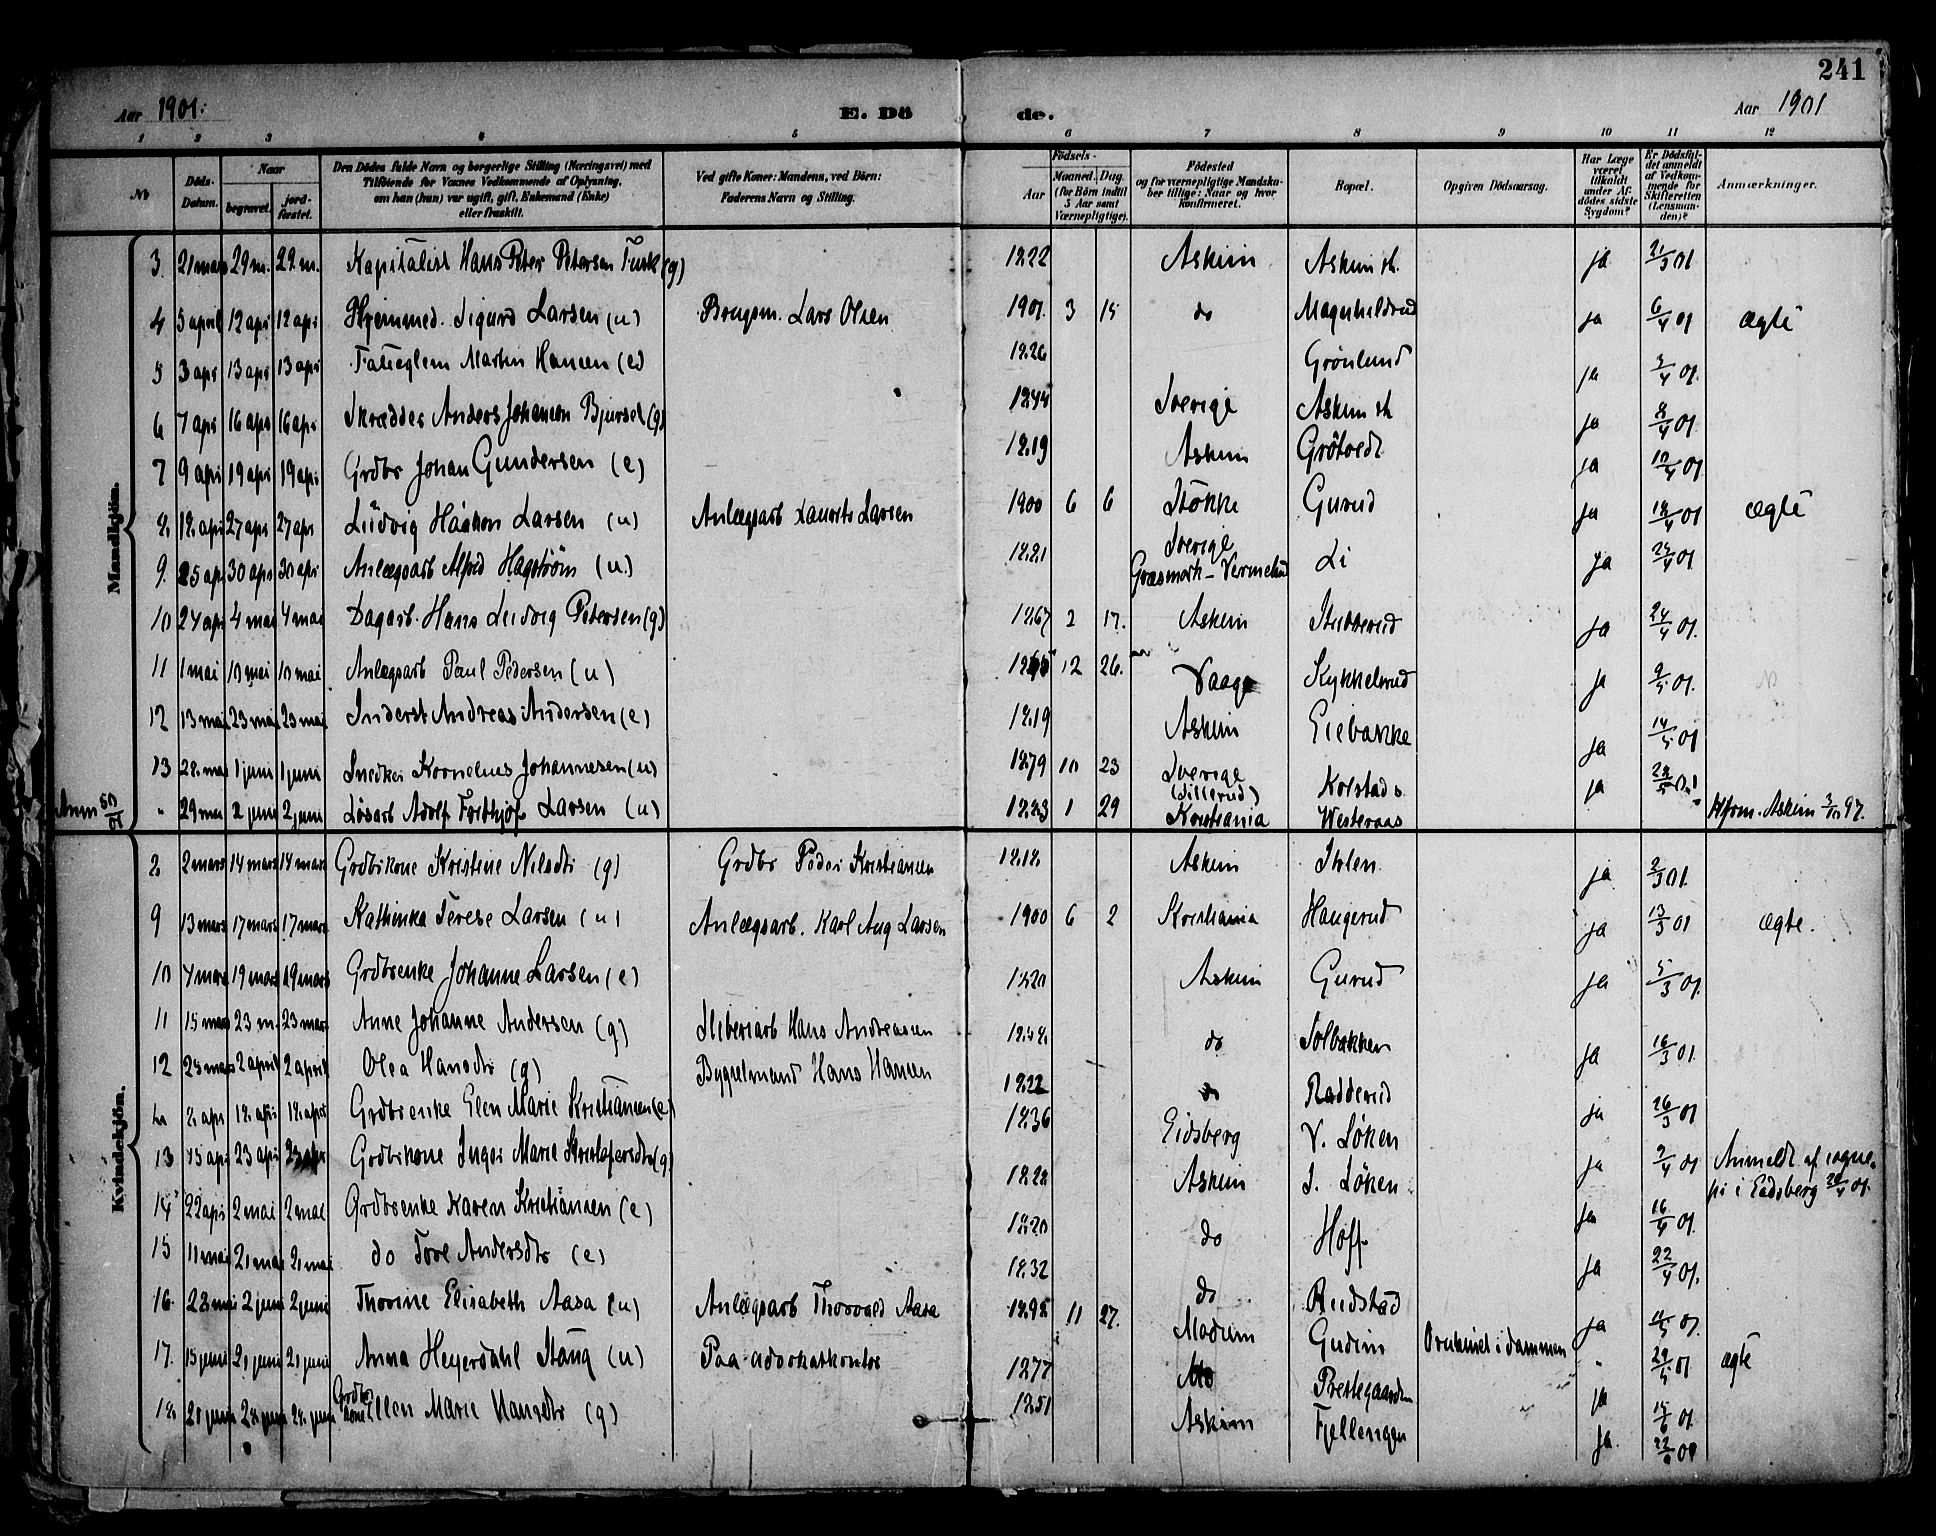 241
Aar 1901. E. Dö de. Aar 1901
1 2 3 4 5 6 7 8 9 10 11 12
No Döds-Datum. Naar begravet. jord-fæstet. Den Dödes fulde Navn og borgerlige Stilling (Næringsvei) med Tilföiende for Voxnes Vedkommende af Oplysning, om han (hun) var ugift, gift, Enkemand (Enke) eller fraskilt. Ved gifte Koner: Mandens, ved Börn: Faderens Navn og Stilling. Födsels- Aar Maaned. Dag. (for Börn indtil 5 Aar samt Værnepligtige). Födested og for værnepligtige Mandskaber tillige: Naar og hvor konfirmeret. Bopæl. Opgiven Dödsaarsag. Har Læge været tilkaldt under Afdödes sidste Sygdom? Er Dödsfaldet anmeldt af Vedkommende for Skifteretten (Lensmanden)? Anmærkninger.
Mandkjön.
3 21 mars 29 m. 29 m. Kapitalist Hans Peter Petersen Fusk (g) 1822 Askim Askim st. ja 21/3 01
4 5 april 12 apr 12 apr Hjemmed. Sigurd Larsen (u) Brugsm. Lars Olsen 1901. 3 15 do Magnhildrud ja 6/4 01 ægte
5 3 apr 13 apr 13 apr Fattiglem Martin Hansen (e) 1826 Grönlund ja 3/4 01.
6 7 apr 16 apr 16 apr Skrædder Anders Johansen Bjursel (g) 1844 Sverige Askim st ja 8/4 01
7 9 apr 19 apr 19 apr Grdbr Johan Gundersen (e) 1819 Askim Grötvedt ja 10/4 01
8. 18. apr 27 apr 27 apr Ludvig Haakon Larsen (u) Anlægsarb Laurits Larsen 1900 6 6 Stokke Gurud ja 18/4 01 ægte
9. 25 apr 30 apr 30 apr Anlægsarb Alfred Hagström (u.) 1881 Sverige Græsmark - Li ja 01
10 24 apr 4 mai 4 mai Dagarb. Hans Ludvig Petersen (g) 1867 2 17. Askim Stubberud ja 24/4 01.
11 1 mai 10 mai 10 mai Anlægsarb Paul Pedersen (u) 12 26. Vaage Kykkelsrud ja 2/5 01.
12 13 mai 23 mai 23 mai Inderst Andreas Andersen (e) 1819 Askim Eiebakke ja 14/5 01
13 28. mai 1 juni 1 juni Snedker Kornelius Johannesen (u) 1879 10 23 Sverige (Sillerud) Kolstad s. ja 28/5 01
" 29 mai 2 juni 2 juni Løsarb Adolf Fridthjof Larsen (u) 1883 1 29 Kristiania Westeraas " Kfrm. Askim 3/10 97.
Kvindekjön.
8 2 mars 14 mars 14 mars Grdbrkone Kristine Nilsdtr (g) Grdbr Peder Kristiansen 1818. Askim Ihlen ja 2/3 01.
9 13 mars 17 mars 17 mars Kathinka Terese Larsen (u) Anlægsarb. Karl Aug Larsen 1900 6 2 Kristiania Haugerud ja 13/3 01 ægte.
10 4 mars 19 mars 19 mars Grdbrenke Johanne Larsen (e) 1820 Askim Gurud ja 5/3 01.
11 15 mars 23 m. 23 mars Anne Johanne Andersen (g) Sliberiarb Hans Andreassen 1848. do Solbakken ja 16/3 01.
12 25 mars 2 april 2 april Olea Hansdtr (g) Bygselmand Hans Hansen 1822 do Radderud ja 26/3 01
8. apr 18. apr 18. apr Grdbrenke Elen Marie Kristiansen (e) 1836 Eidsberg V. Löken ja 9/4 01 Anmeldt af sognepr i Eidsberg 20/4 01.
13 15 apr 23 apr 23 apr Grdbrkone Inger Marie Kristofersdtr (g) 1828 Askim S. Löken ja 16/4 01.
14 22 apr 2 mai 2 mai Grdbrenke Karen Kristiansen (e) 1820 do Hoff ja 22/4 01.
15 11 mai 21 mai 21 mai do Tore Andersdtr (e) 1832 do Rudstad ja 01.
16. 28 mai 2 juni 2 juni Thorine Elisabeth Aasa (u) Anlægsarb Thorvald Aasa 1898 11 27. Modum Gudim Druknet i dammen " 29/5 01 ægte
17. 15 juni 21 juni 21 juni Anna Heyerdahl Stang (u) Paa advokatkontor 1877 Mo Prestegaarden ja 15/6 01.
18. 20 juni 28. juni 28. juni Grdbrkone Ellen Marie Hansdtr (g) 1851 Askim Fjellengen ja 22/6 01